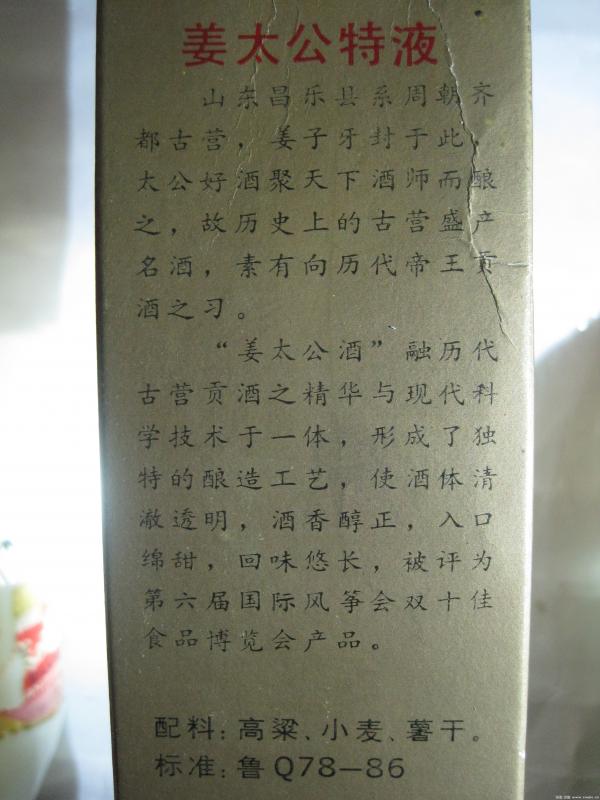 姜太公特液
山东昌乐县系周朝齐
都古营，姜子牙封于此，
太公好酒聚天下酒师而酿
之，故历史上的古营盛产
名酒，素有向历代帝王贡
酒之习。
“姜太公酒”融历代
古营贡酒之精华与现代科
学技术于一体，形成了独
特的酿造工艺，使酒体清
澈透明，酒香醇正，入口
绵甜，回味悠长，被评为
第六届国际风筝会双十佳
食品博览会产品。
配料：高粱、小麦、薯干。
标准：鲁Q78—86